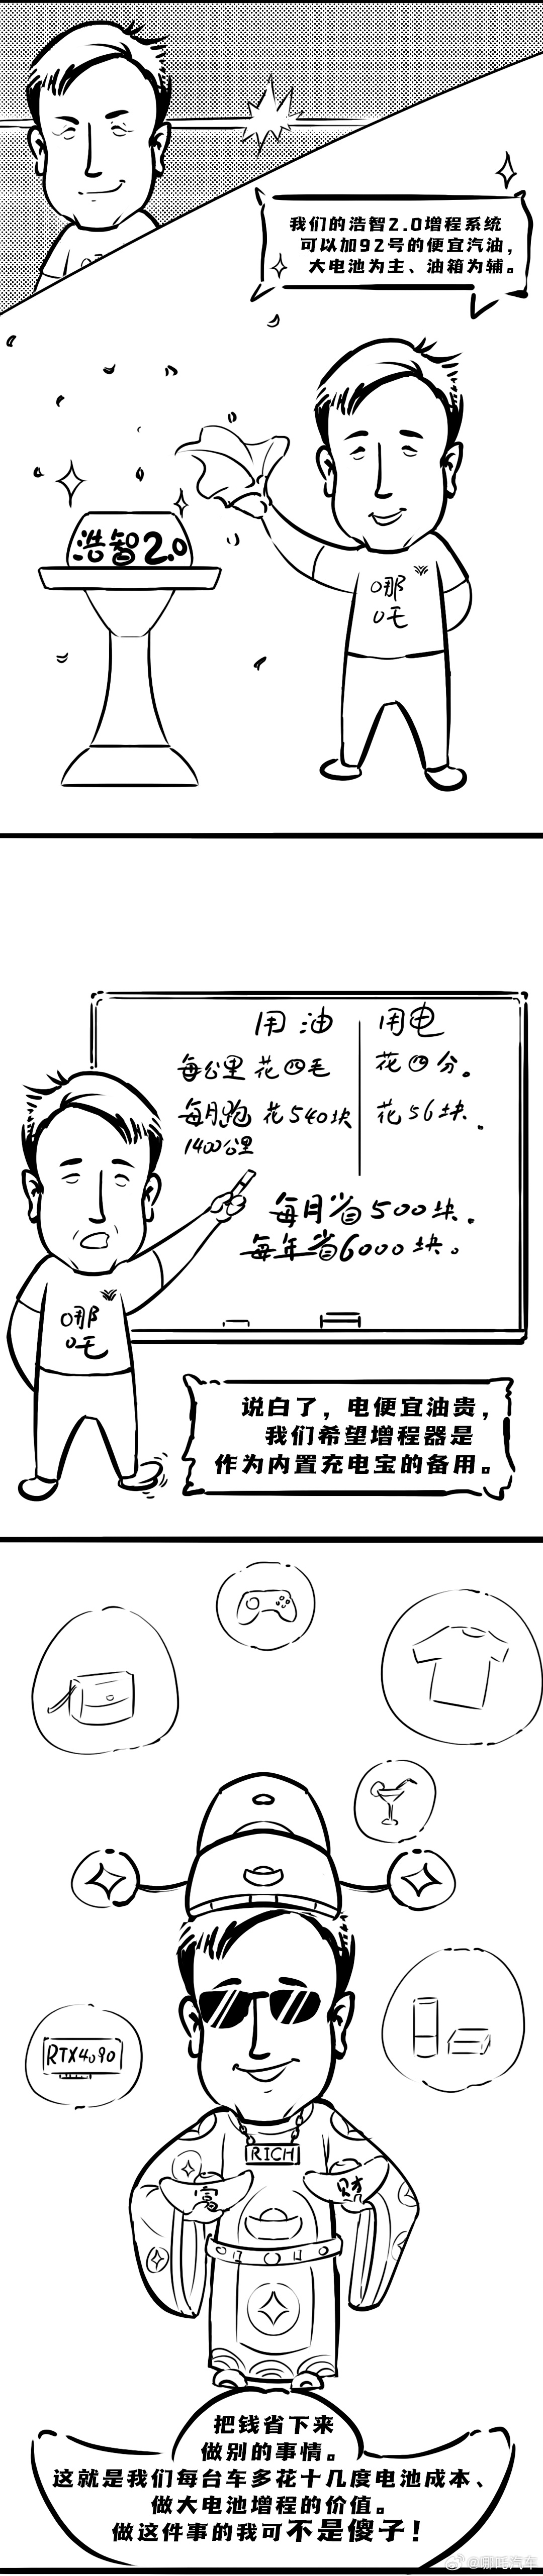 我们的浩智2.0增程系统
可以加92号的便宜汽油，
大电池为主、油箱为辅。
浩智2.0
哪吒
用油
用电
每公里 花四毛
花四分。
每月跑 花540块
花56块。
1400公里
每月省500块。
每年省6000块。
哪吒
说白了，电便宜油贵，
我们希望增程器是
作为内置充电宝的备用。
RTX4090
RICH
富
财
把钱省下来
做别的事情。
这就是我们每台车多花十几度电池成本、
做大电池增程的价值。
做这件事的我可不是傻子！
@哪吒汽车